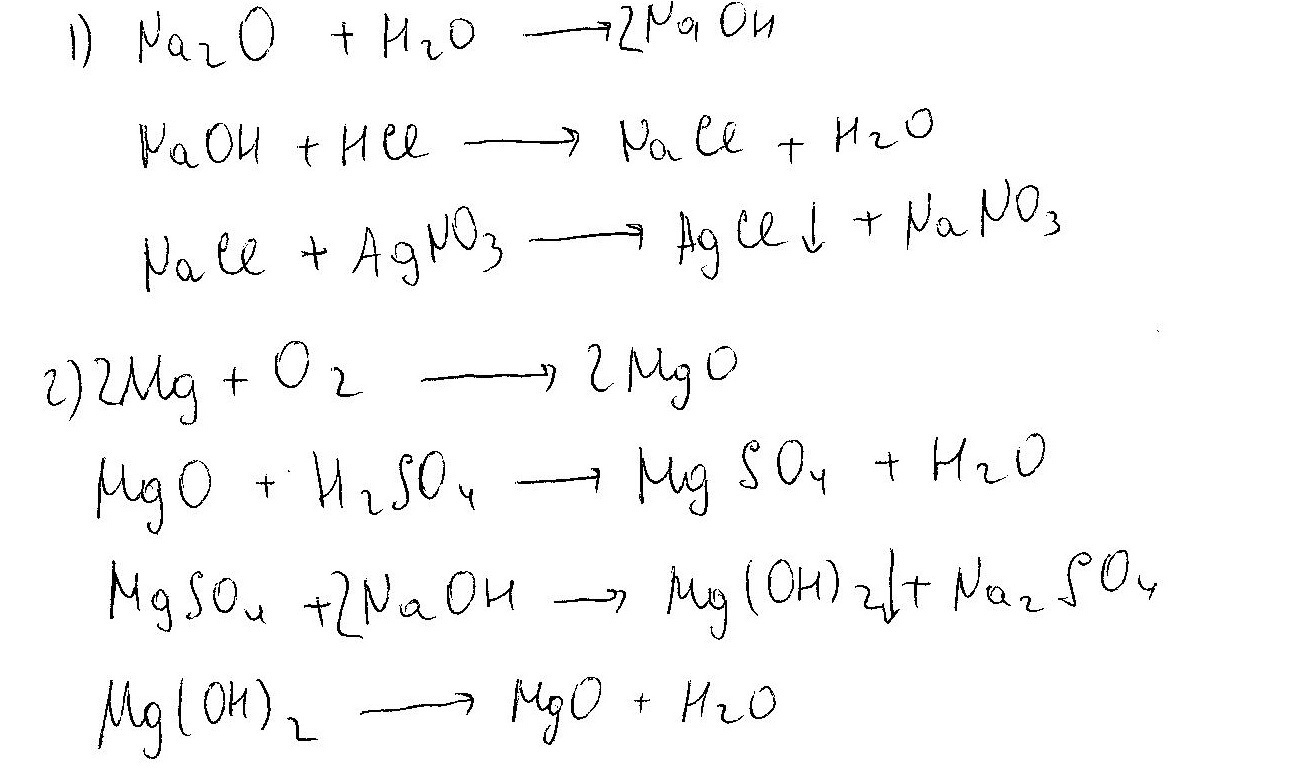 1) Na₂O + H₂O ⟶ 2NaOH
NaOH + HCl ⟶ NaCl + H₂O
NaCl + AgNO₃ ⟶ AgCl↓ + NaNO₃
2) 2Mg + O₂ ⟶ 2MgO
MgO + H₂SO₄ ⟶ MgSO₄ + H₂O
MgSO₄ + 2NaOH ⟶ Mg(OH)₂↓ + Na₂SO₄
Mg(OH)₂ ⟶ MgO + H₂O